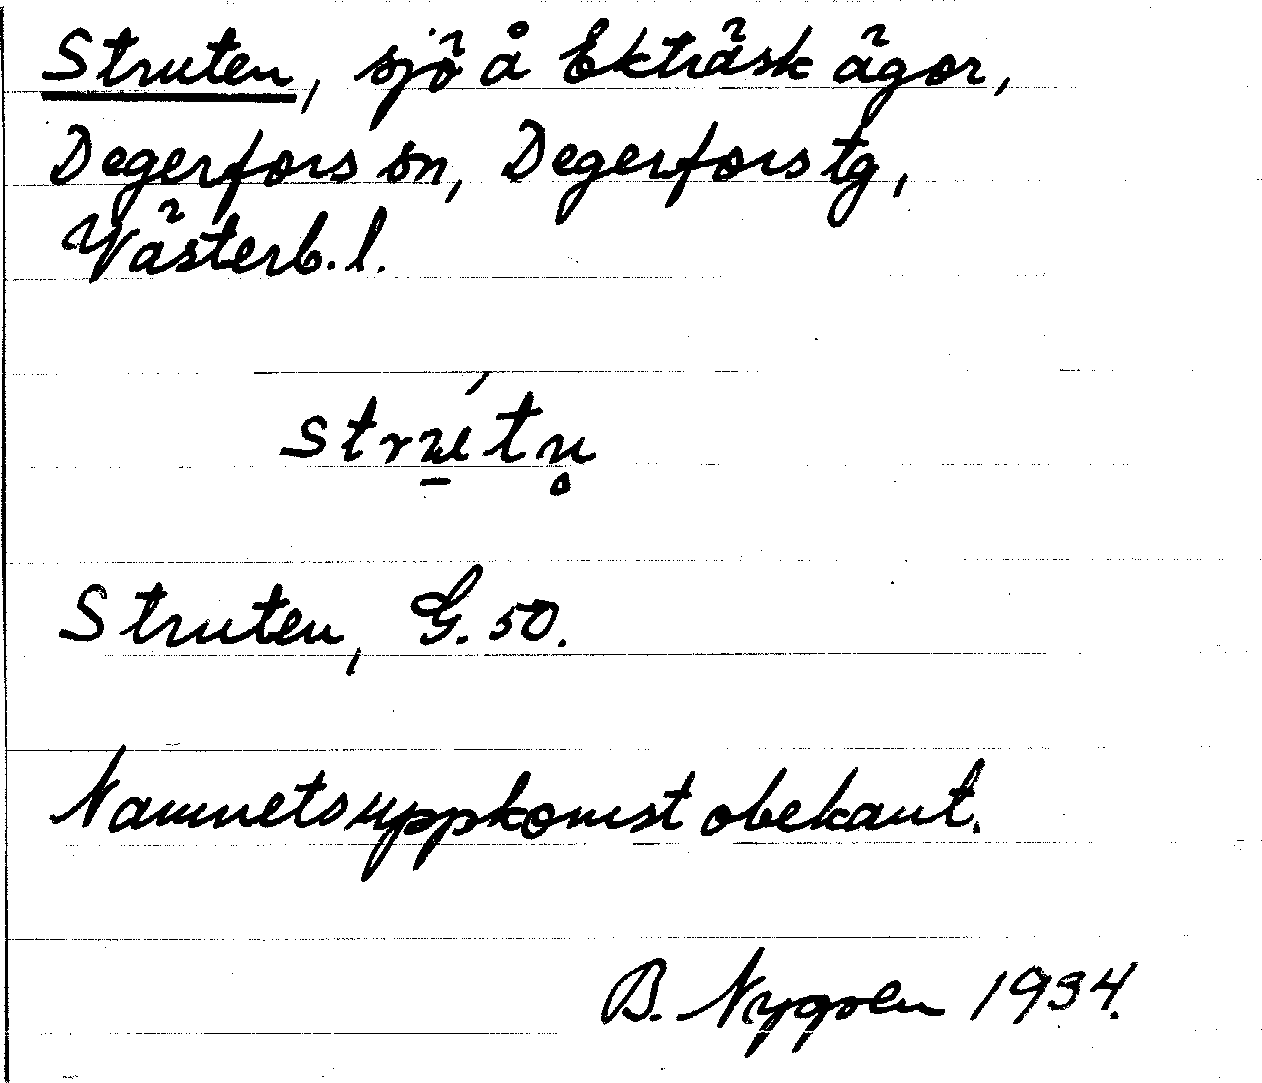 Struten, sjö å Ekträsk ägor,
Degerfors sn, Degerfors tg,
Västerb. l.
Struten, G. 50.
Namnets uppkomst obekant.
B. Nygren 1934.